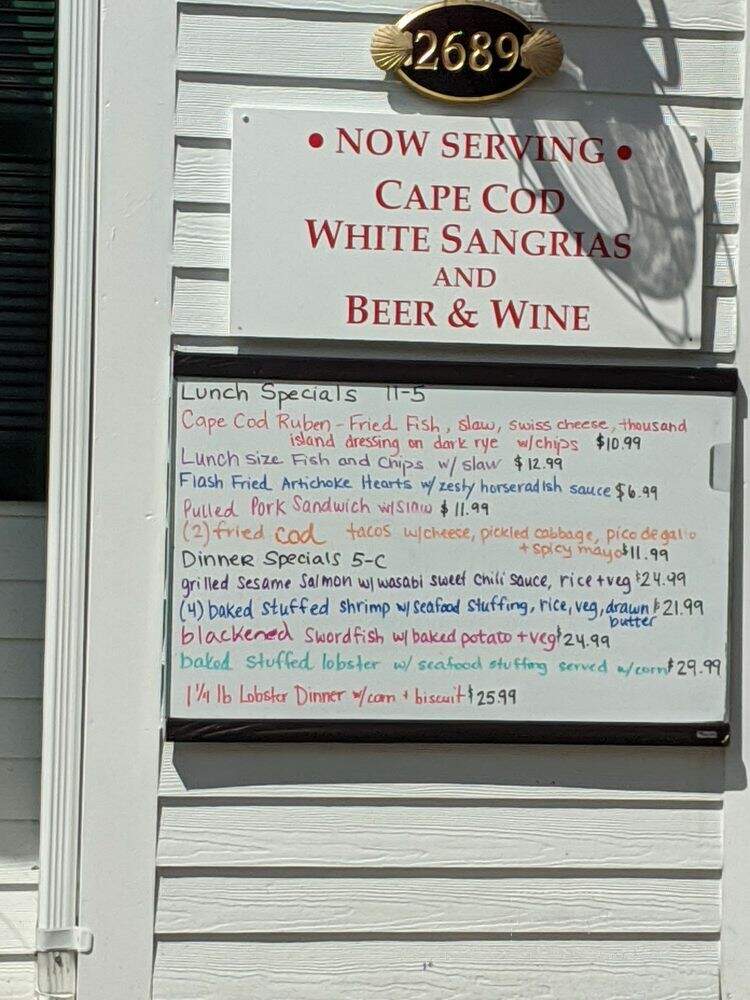 2689
• NOW SERVING •
CAPE COD
WHITE SANGRIAS
AND
BEER & WINE
Lunch Specials 11-5
Cape Cod Ruben - Fried Fish, slaw, swiss cheese, thousand
island dressing on dark rye w/chips $10.99
Lunch size Fish and Chips w/ slaw $12.99
Flash Fried Artichoke Hearts w/ zesty horseradish sauce $6.99
Pulled Pork Sandwich w/slaw $11.99
(2) fried cod tacos w/cheese, pickled cabbage, pico de gallo
+ spicy mayo $11.99
Dinner Specials 5-C
grilled sesame salmon w/ wasabi sweet chili sauce, rice + veg $24.99
(4) baked stuffed shrimp w/ seafood stuffing, rice, veg, drawn $21.99
butter
blackened swordfish w/ baked potato + veg $24.99
baked stuffed lobster w/ seafood stuffing served w/corn $29.99
1 1/4 lb Lobster Dinner w/corn + biscuit $25.99